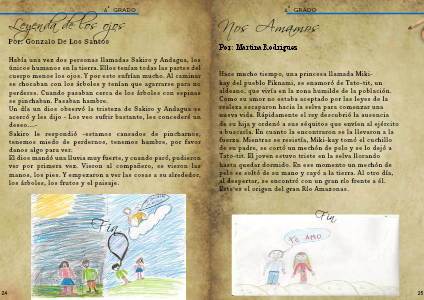 4° GRADO
Leyenda de los ojos
Por: Gonzalo De Los Santos
Había una vez dos personas llamadas Sakiro y Andagua, los
únicos humanos en la tierra. Ellos tenían todas las partes del
cuerpo menos los ojos. Y por esto sufrían mucho. Al caminar
se chocaban con los árboles y tenían que agarrarse para no
perderse. Cuando pasaban cerca de los árboles con espinas
se pinchaban. Pasaban hambre.
Un día un dios observó la tristeza de Sakiro y Andagua se
acercó y les dijo - Los veo sufrir bastante, les concederé un
deseo....-
Sakiro le respondió -estamos cansados de pincharnos,
tenemos miedo de perdernos, tenemos hambre, por favor
danos algo para ver.
El dios mandó una lluvia muy fuerte, y cuando paró, pudieron
ver por primera vez. Vieron al compañero, se vieron las
manos, los pies. Y empezaron a ver las cosas a su alrededor,
los árboles, los frutos y el paisaje.
Fin
24
4° GRADO
Nos Amamos
Por: Martina Rodrigues
Hace mucho tiempo, una princesa llamada Miki-
kay del pueblo Piknami, se enamoró de Tato-tit, un
aldeano, que vivía en la zona humilde de la población.
Como su amor no estaba aceptado por las leyes de la
realeza escaparon hacia la selva para comenzar una
nueva vida. Rápidamente el rey descubrió la ausencia
de su hija y ordenó a sus séquitos que envíen al ejército
a buscarla. En cuanto la encontraron se la llevaron a la
fuerza. Mientras se resistía, Miki-kay tomó el cuchillo
de su padre, se cortó un mechón de pelo y se lo dejó a
Tato-tit. El joven estuvo triste en la selva llorando
hasta quedar dormido. En ese momento un mechón de
pelo se soltó de su mano y cayó a la tierra. Al otro día,
al despertar, se encontró con un gran río frente a él.
Este es el origen del gran Río Amazonas.
Fin
Te AMO
25